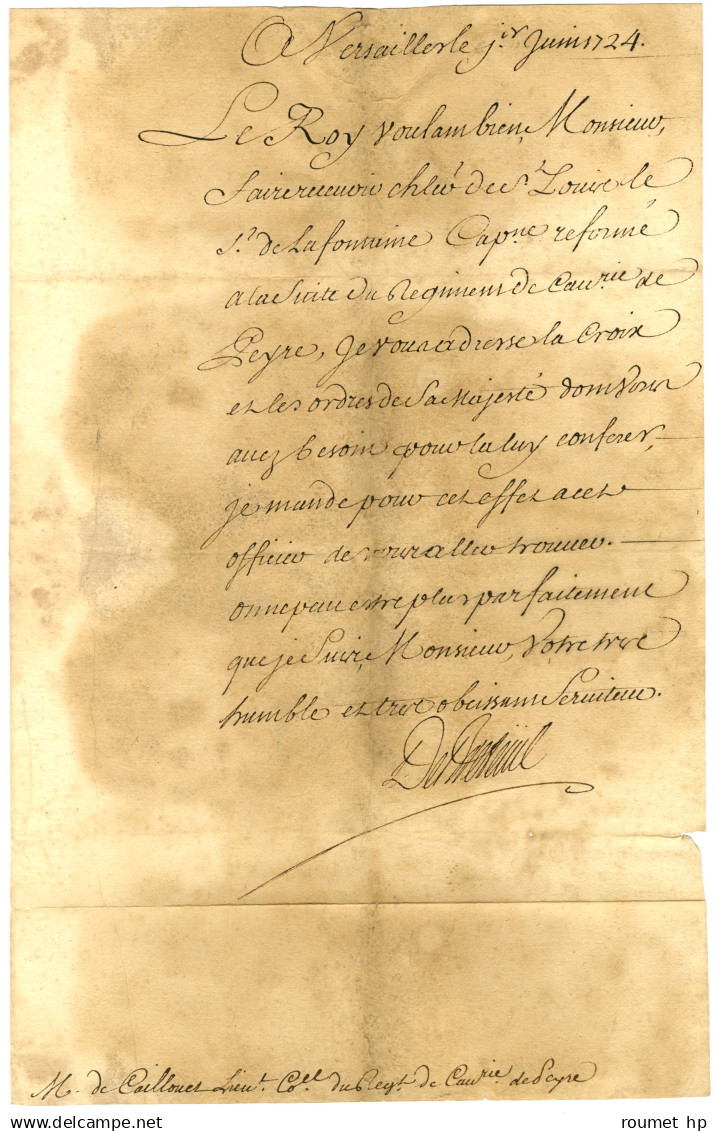 A Versailles le j.er Juin 1724.
Le Roy voulant bien, Monsieur,
faire recevoir chler de St. Louis le
Sr. de Lafontaine Capne. reformé
a la Suite du Regiment de Cavrie de
Peyre, Je vous adresse la Croix
et les ordres de Sa Majesté dont Vous
avez besoin pour la luy conferer,
je mande pour cet effet a cet
officier de vous aller trouver.
on ne peut estre plus parfaitement
que je Suis, Monsieur, Votre tres
humble et tres obeissant Serviteur.
De Breteüil
M. de Caillouet Lieut. Coll. du Regt. de Cavrie. de Peyre
www.delcampe.net
roumet hp